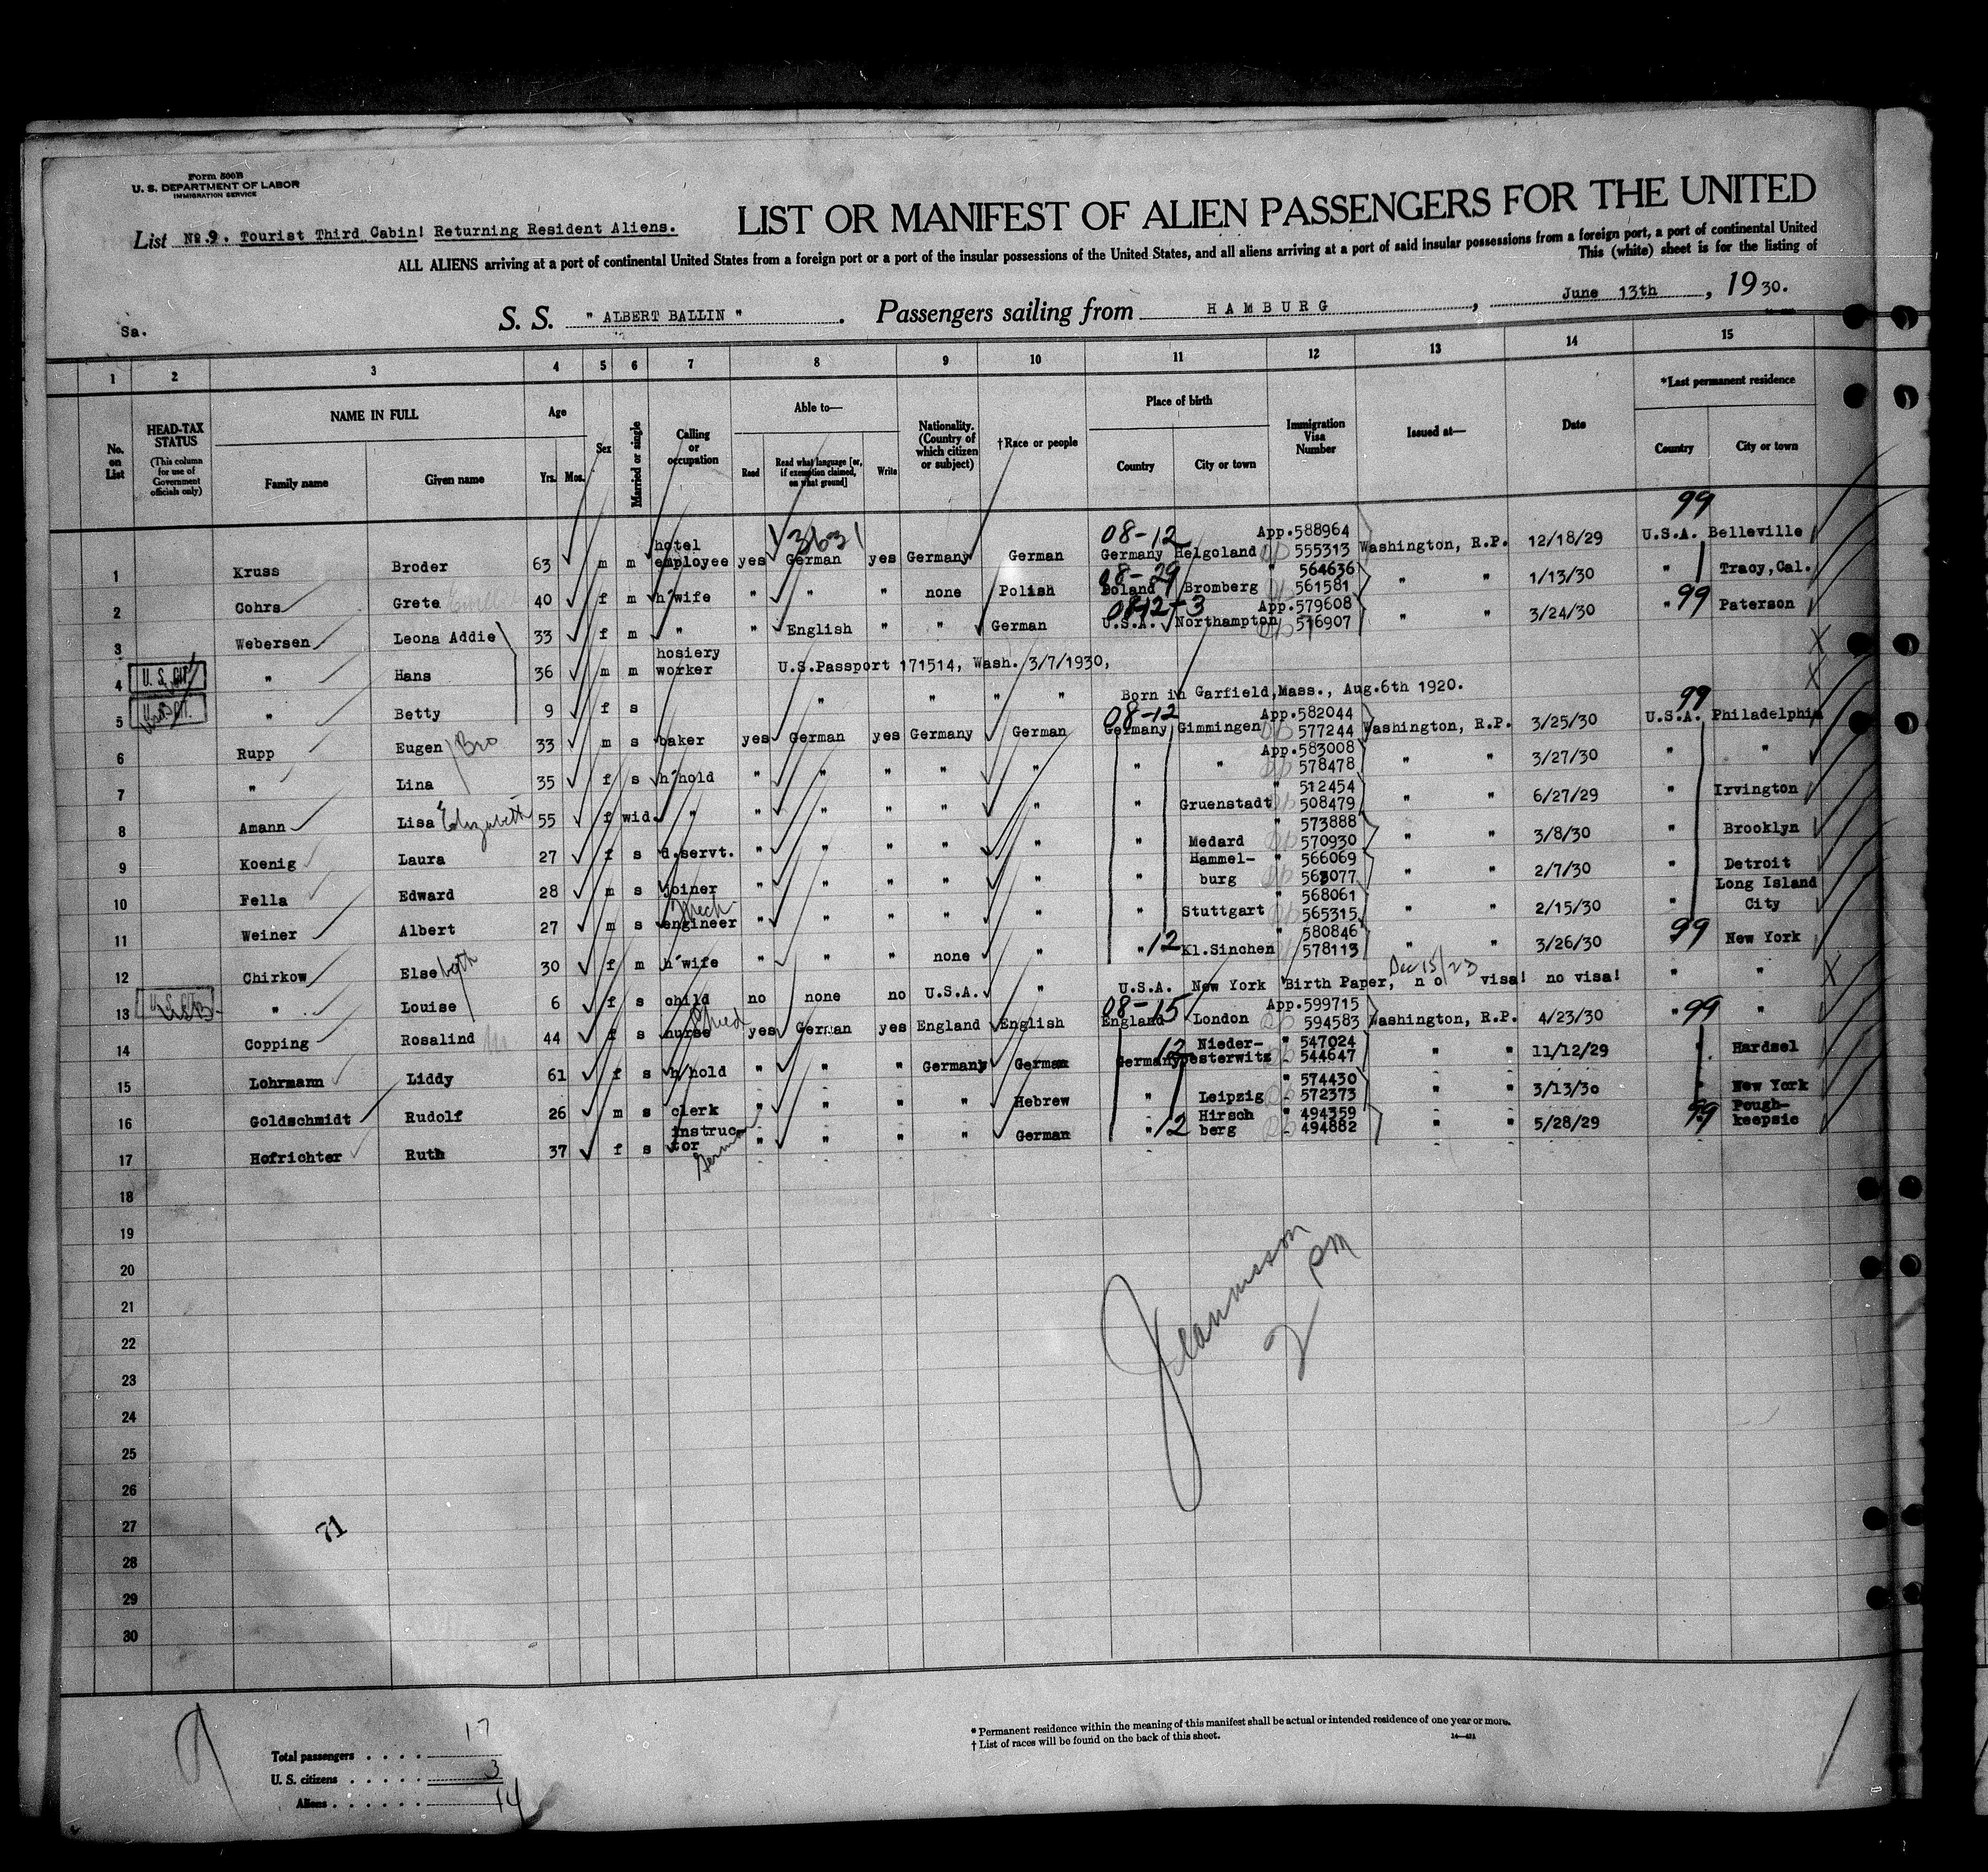 Form 500B
U. S. DEPARTMENT OF LABOR
IMMIGRATION SERVICE
List No.9. Tourist Third Cabin! Returning Resident Aliens.
LIST OR MANIFEST OF ALIEN PASSENGERS FOR THE UNITED
ALL ALIENS arriving at a port of continental United States from a foreign port or a port of the insular possessions of the United States, and all aliens arriving at a port of said insular possessions from a foreign port, a port of continental United
This (white) sheet is for the listing of
Sa.
S. S. " ALBERT BALLIN " . Passengers sailing from HAMBURG , June 13th , 1930.
1 2 3 4 5 6 7 8 9 10 11 12 13 14 15
No. on List
HEAD-TAX STATUS (This column for use of Government officials only)
NAME IN FULL
Family name Given name
Age
Yrs. Mos.
Sex
Married or single
Calling or occupation
Able to—
Read Read what language [or, if exemption claimed, on what ground] Write
Nationality. (Country of which citizen or subject)
†Race or people
Place of birth
Country City or town
Immigration Visa Number
Issued at—
Date
*Last permanent residence
Country City or town
3631 08-12 99
1 Kruss Broder 63 m m hotel employee yes German yes Germany German Germany Helgoland App.588964 555313 Washington, R.P. 12/18/29 U.S.A. Belleville
08-29
2 Cohrs Grete 40 f m h'wife " " " none Polish Poland Bromberg " 564636 561581 " " 1/13/30 " Tracy,Cal.
0812-3 99
3 Webersen Leona Addie 33 f m " " English " " German U.S.A. Northampton App.579608 516907 " " 3/24/30 " Paterson
4 U. S. CIT. " Hans 36 m m hosiery worker U.S.Passport 171514, Wash. 3/7/1930,
5 U. S. CIT. " Betty 9 f s " " " " Born in Garfield,Mass., Aug.6th 1920.
08-12 99
6 Rupp Eugen Bro 33 m s baker yes German yes Germany German Germany Gimmingen App.582044 577244 Washington, R.P. 3/25/30 U.S.A. Philadelphia
7 " Lina 35 f s h'hold " " " " " " " App.583008 578478 " " 3/27/30 " "
8 Amann Lisa Elizabeth 55 f wid. " " " " " " " Gruenstadt " 512454 508479 " " 6/27/29 " Irvington
9 Koenig Laura 27 f s d.servt. " " " " " " Medard " 573888 570930 " " 3/8/30 " Brooklyn
10 Fella Edward 28 m s joiner " " " " " " Hammel-burg " 566069 563077 " " 2/7/30 " Detroit
11 Weiner Albert 27 m s Mech engineer " " " " " " Stuttgart " 568061 565315 " " 2/15/30 " Long Island City
12 Chirkow Elsebeth 30 f m h'wife " " " none " " 12 Kl.Sinchen " 580846 578113 " " 3/26/30 99 New York
13 U. S. CIT. " Louise 6 f s child no none no U.S.A. " U.S.A. New York Birth Paper, Dec 15/23 no visa! no visa! " "
08-15 99
14 Copping Rosalind 44 f s nurse yes German yes England English England London App.599715 594583 Washington, R.P. 4/23/30 " "
15 Lohrmann Liddy 61 f s h'hold " " " Germany German Germany 12 Nieder-pesterwitz " 547024 544647 " " 11/12/29 " Hardsel
16 Goldschmidt Rudolf 26 m s clerk " " " " Hebrew " Leipzig " 574430 572373 " " 3/13/30 " New York
17 Hofrichter Ruth 37 f s instructor German " " " " German " 12 Hirsch berg " 494359 494882 " " 5/28/29 99 Pough-keepsie
18
19
20
21
22
23
24
25
26
27
28
29
30
2 pm
71
Total passengers 17
U. S. citizens 3
Aliens 14
* Permanent residence within the meaning of this manifest shall be actual or intended residence of one year or more.
† List of races will be found on the back of this sheet.